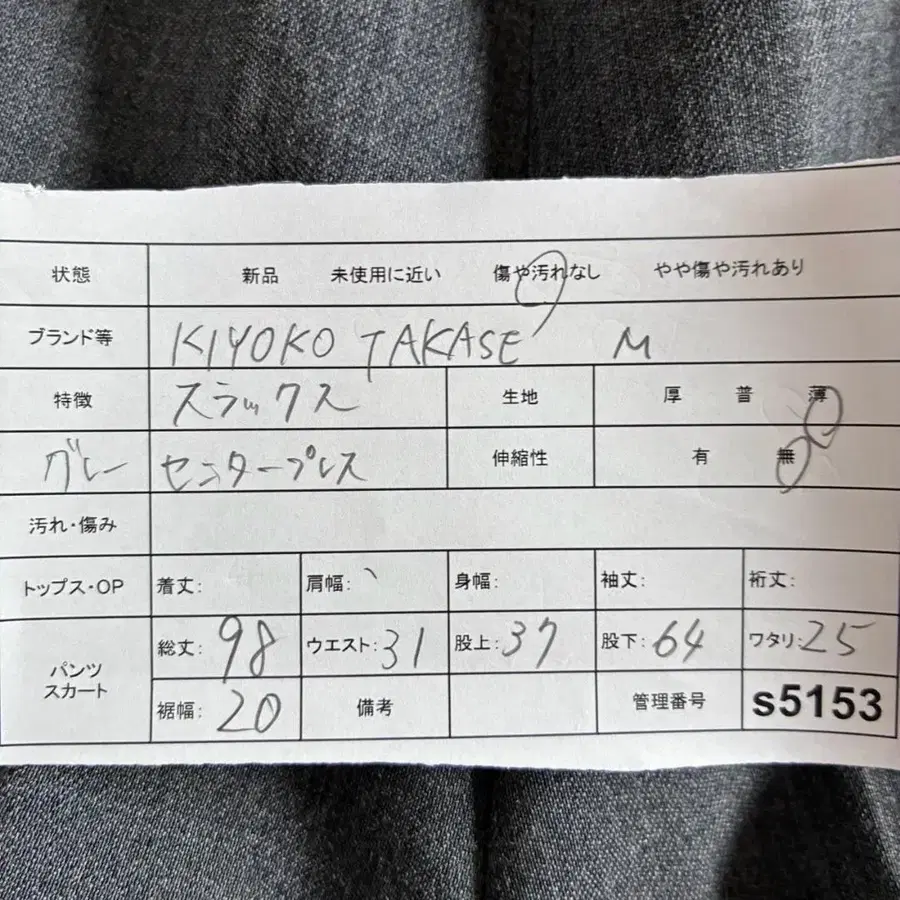 状態 新品 未使用に近い 傷や汚れなし やや傷や汚れあり
ブランド等 KIYOKO TAKASE M
特徴 スラックス 生地 厚 普 薄
グレー センタープレス 伸縮性 有 無
汚れ・傷み
トップス・OP 着丈: 肩幅: 身幅: 袖丈: 裄丈:
パンツ スカート 総丈: 98 ウエスト: 31 股上: 37 股下: 64 ワタリ: 25
裾幅: 20 備考 管理番号 s5153